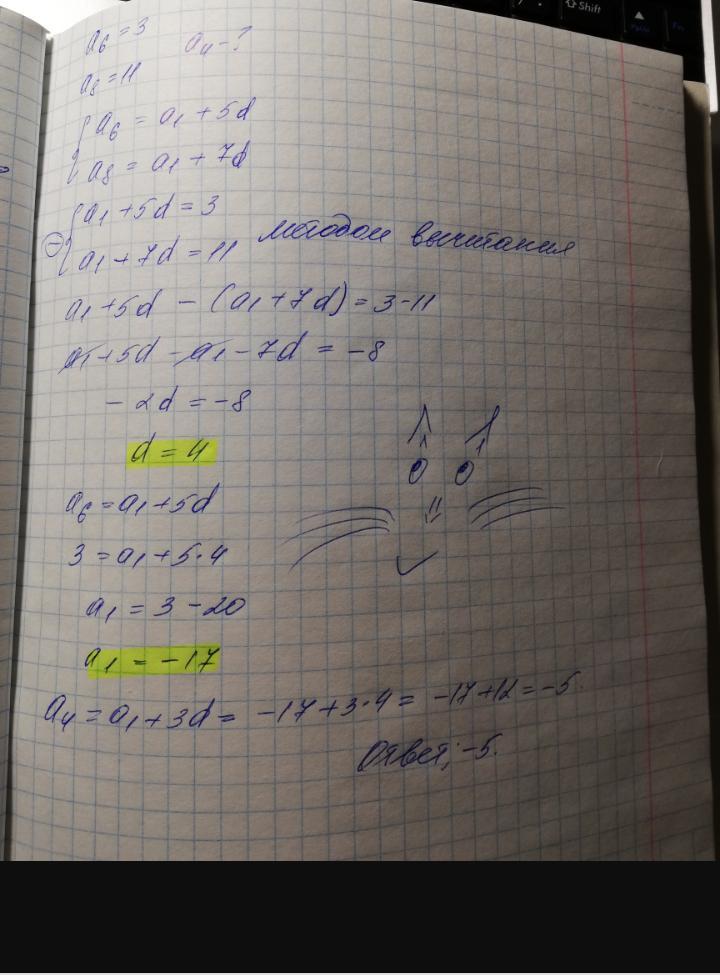 a₆ = 3 a₄ - ?
a₈ = 11
{ a₆ = a₁ + 5d
a₈ = a₁ + 7d
- { a₁ + 5d = 3
a₁ + 7d = 11 методом вычитания
a₁ + 5d - (a₁ + 7d) = 3 - 11
a₁ + 5d - a₁ - 7d = -8
- 2d = -8
d = 4
a₆ = a₁ + 5d
3 = a₁ + 5·4
a₁ = 3 - 20
a₁ = -17
a₄ = a₁ + 3d = -17 + 3·4 = -17 + 12 = -5.
Ответ: -5.
Shift